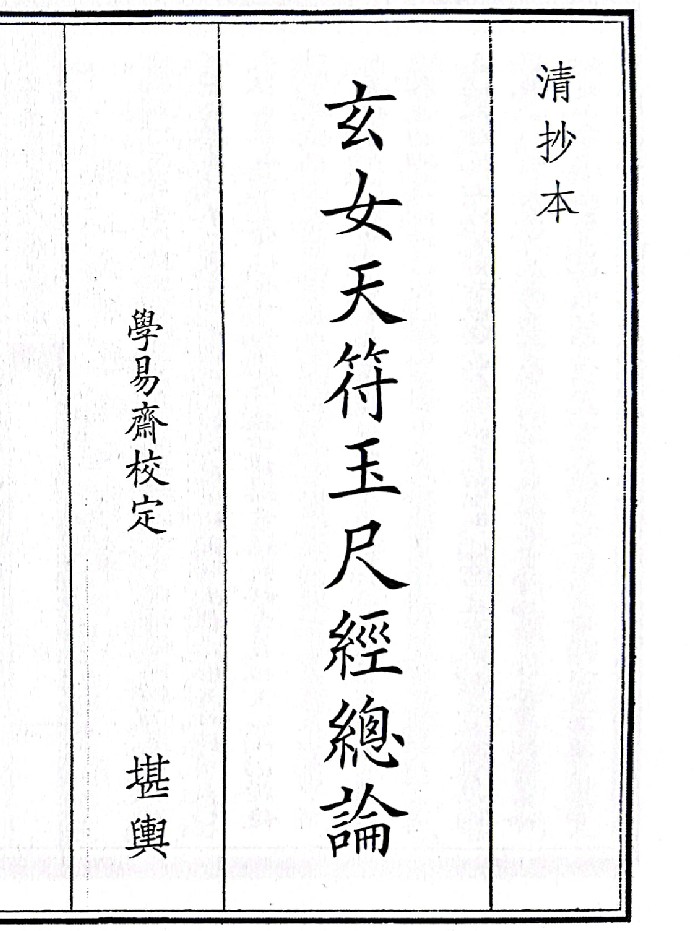 清抄本
玄女天符玉尺經總論
學易齋校定
堪輿